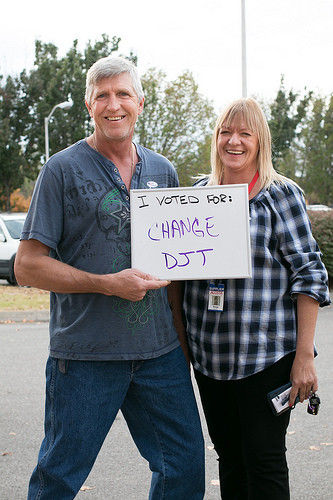 I VOTED FOR:
CHANGE
DJT